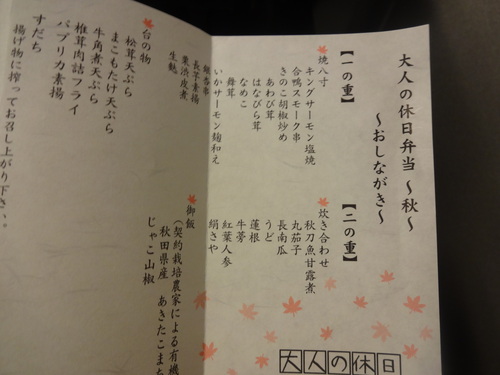 大人の休日弁当 ～秋～
～おしながき～
【一の重】
焼八寸
キングサーモン塩焼
合鴨スモーク串
きのこ胡椒炒め
あわび茸
はなびら茸
なめこ
舞茸
いかサーモン麹和え
銀杏串
長芋素揚
栗渋皮煮
生麩
台の物
松茸天ぷら
まこもたけ天ぷら
牛角煮天ぷら
椎茸肉詰フライ
パプリカ素揚
すだち
揚げ物に搾ってお召し上がり下さい。
【二の重】
炊き合わせ
秋刀魚甘露煮
丸茄子
長南瓜
うど
蓮根
牛蒡
紅葉人参
絹さや
御飯
（契約栽培農家による有機
秋田県産 あきたこまち
じゃこ山椒
大人の休日